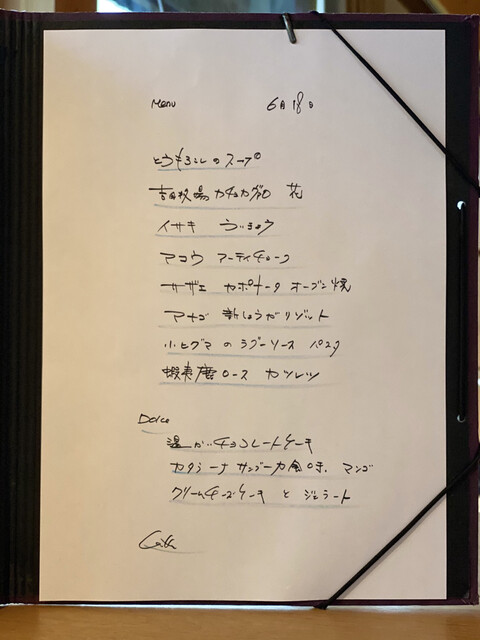 Menu 6月18日
とうもろこしのスープ
吉田牧場カチョカヴァロ 花
イサキ ういきょう
アコウ アーティチョーク
サザエ カポナータ オーブン焼
アナゴ 新しょうがリゾット
小ヒグマのラグーソース パスタ
蝦夷鹿ロース カツレツ
Dolce
温かいチョコレートケーキ
カタラーナ サンブーカ風味 マンゴ
クリームチーズケーキ と ジェラート